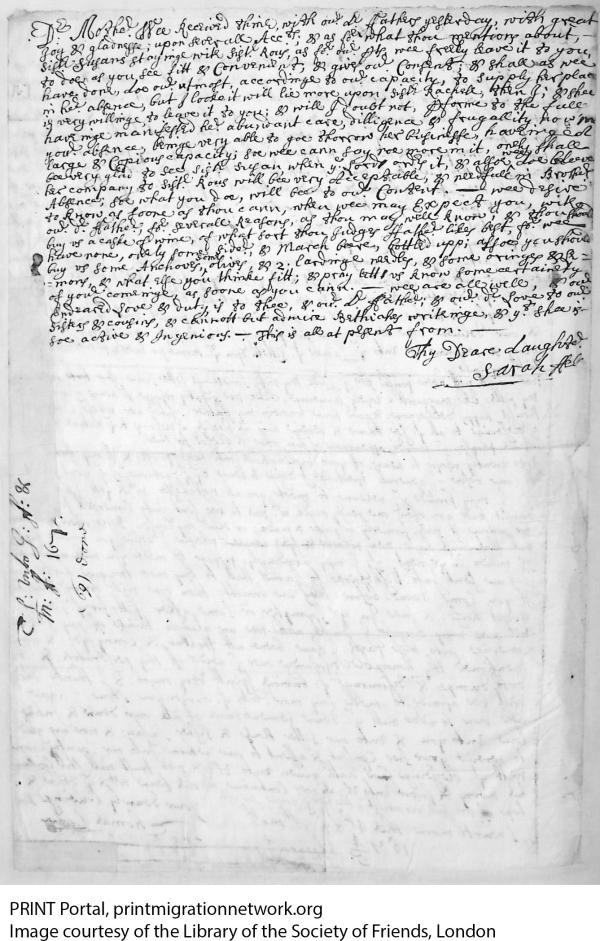 Dr. Mother, Wee Received thine, with our dr ffathers yesterday, with great
Joy & gladnesse; upon severall Acctts; & as for what thou mentions about,
Sistr Susans stayinge with Sistr Rous, as for our pts, wee freely leave it to you,
to doe as you see fitt & Convenient, & give our Consent; & shall as wee
have done, doe our utmost, accordinge to our capacity, to supply her place
in her absence, but I looke it will lie more upon Sistr Rachell, then I, & shee
is very willinge to leave it to you; & will I doubt not, pforme to the full
haveinge manifested her abundant care, dilligence & frugality, now in
your absence, beinge very able to goe thorrow her businesse, haveinge a
large & Copious capacity; soe wee cann say noe more in it, only shall
bee very glad to see Sistr Susan, when ye Lord orders it, & also doe beleeve
her company to Sistr Rous will bee very acceptable, & needfull in Brothers
Absence; soe what you doe, will bee to our Content. — wee desire
to know as soone as thou cann, when wee may Expect you, with
our dr ffather; for severall Reasons, as thou may well know; & thou should
buy us a caske of wine, of what sort thou Judges ffather likes best, for wee
have none, only some sider; & March beere, bottled upp; allsoe you should
buy us some Anchoves, olives, & 2 lardinge needles, & some oringes & le-
mons, & what else you thinke fitt; & pray lett us know some certainety
of your comeinge, as soone as you cann. — wee are all well, & our
Endeared love & duty, is to thee, & our dr ffather; & our dr love to our
Sisters & cousins, & cannott but admire Bethiahs writeinge, & yt shee is
soe active & Ingenious. — This is all at psent from. —
Thy Deare daughter
Sarah ffell
M: ff: 167
(69)
PRINT Portal, printmigrationnetwork.org
Image courtesy of the Library of the Society of Friends, London